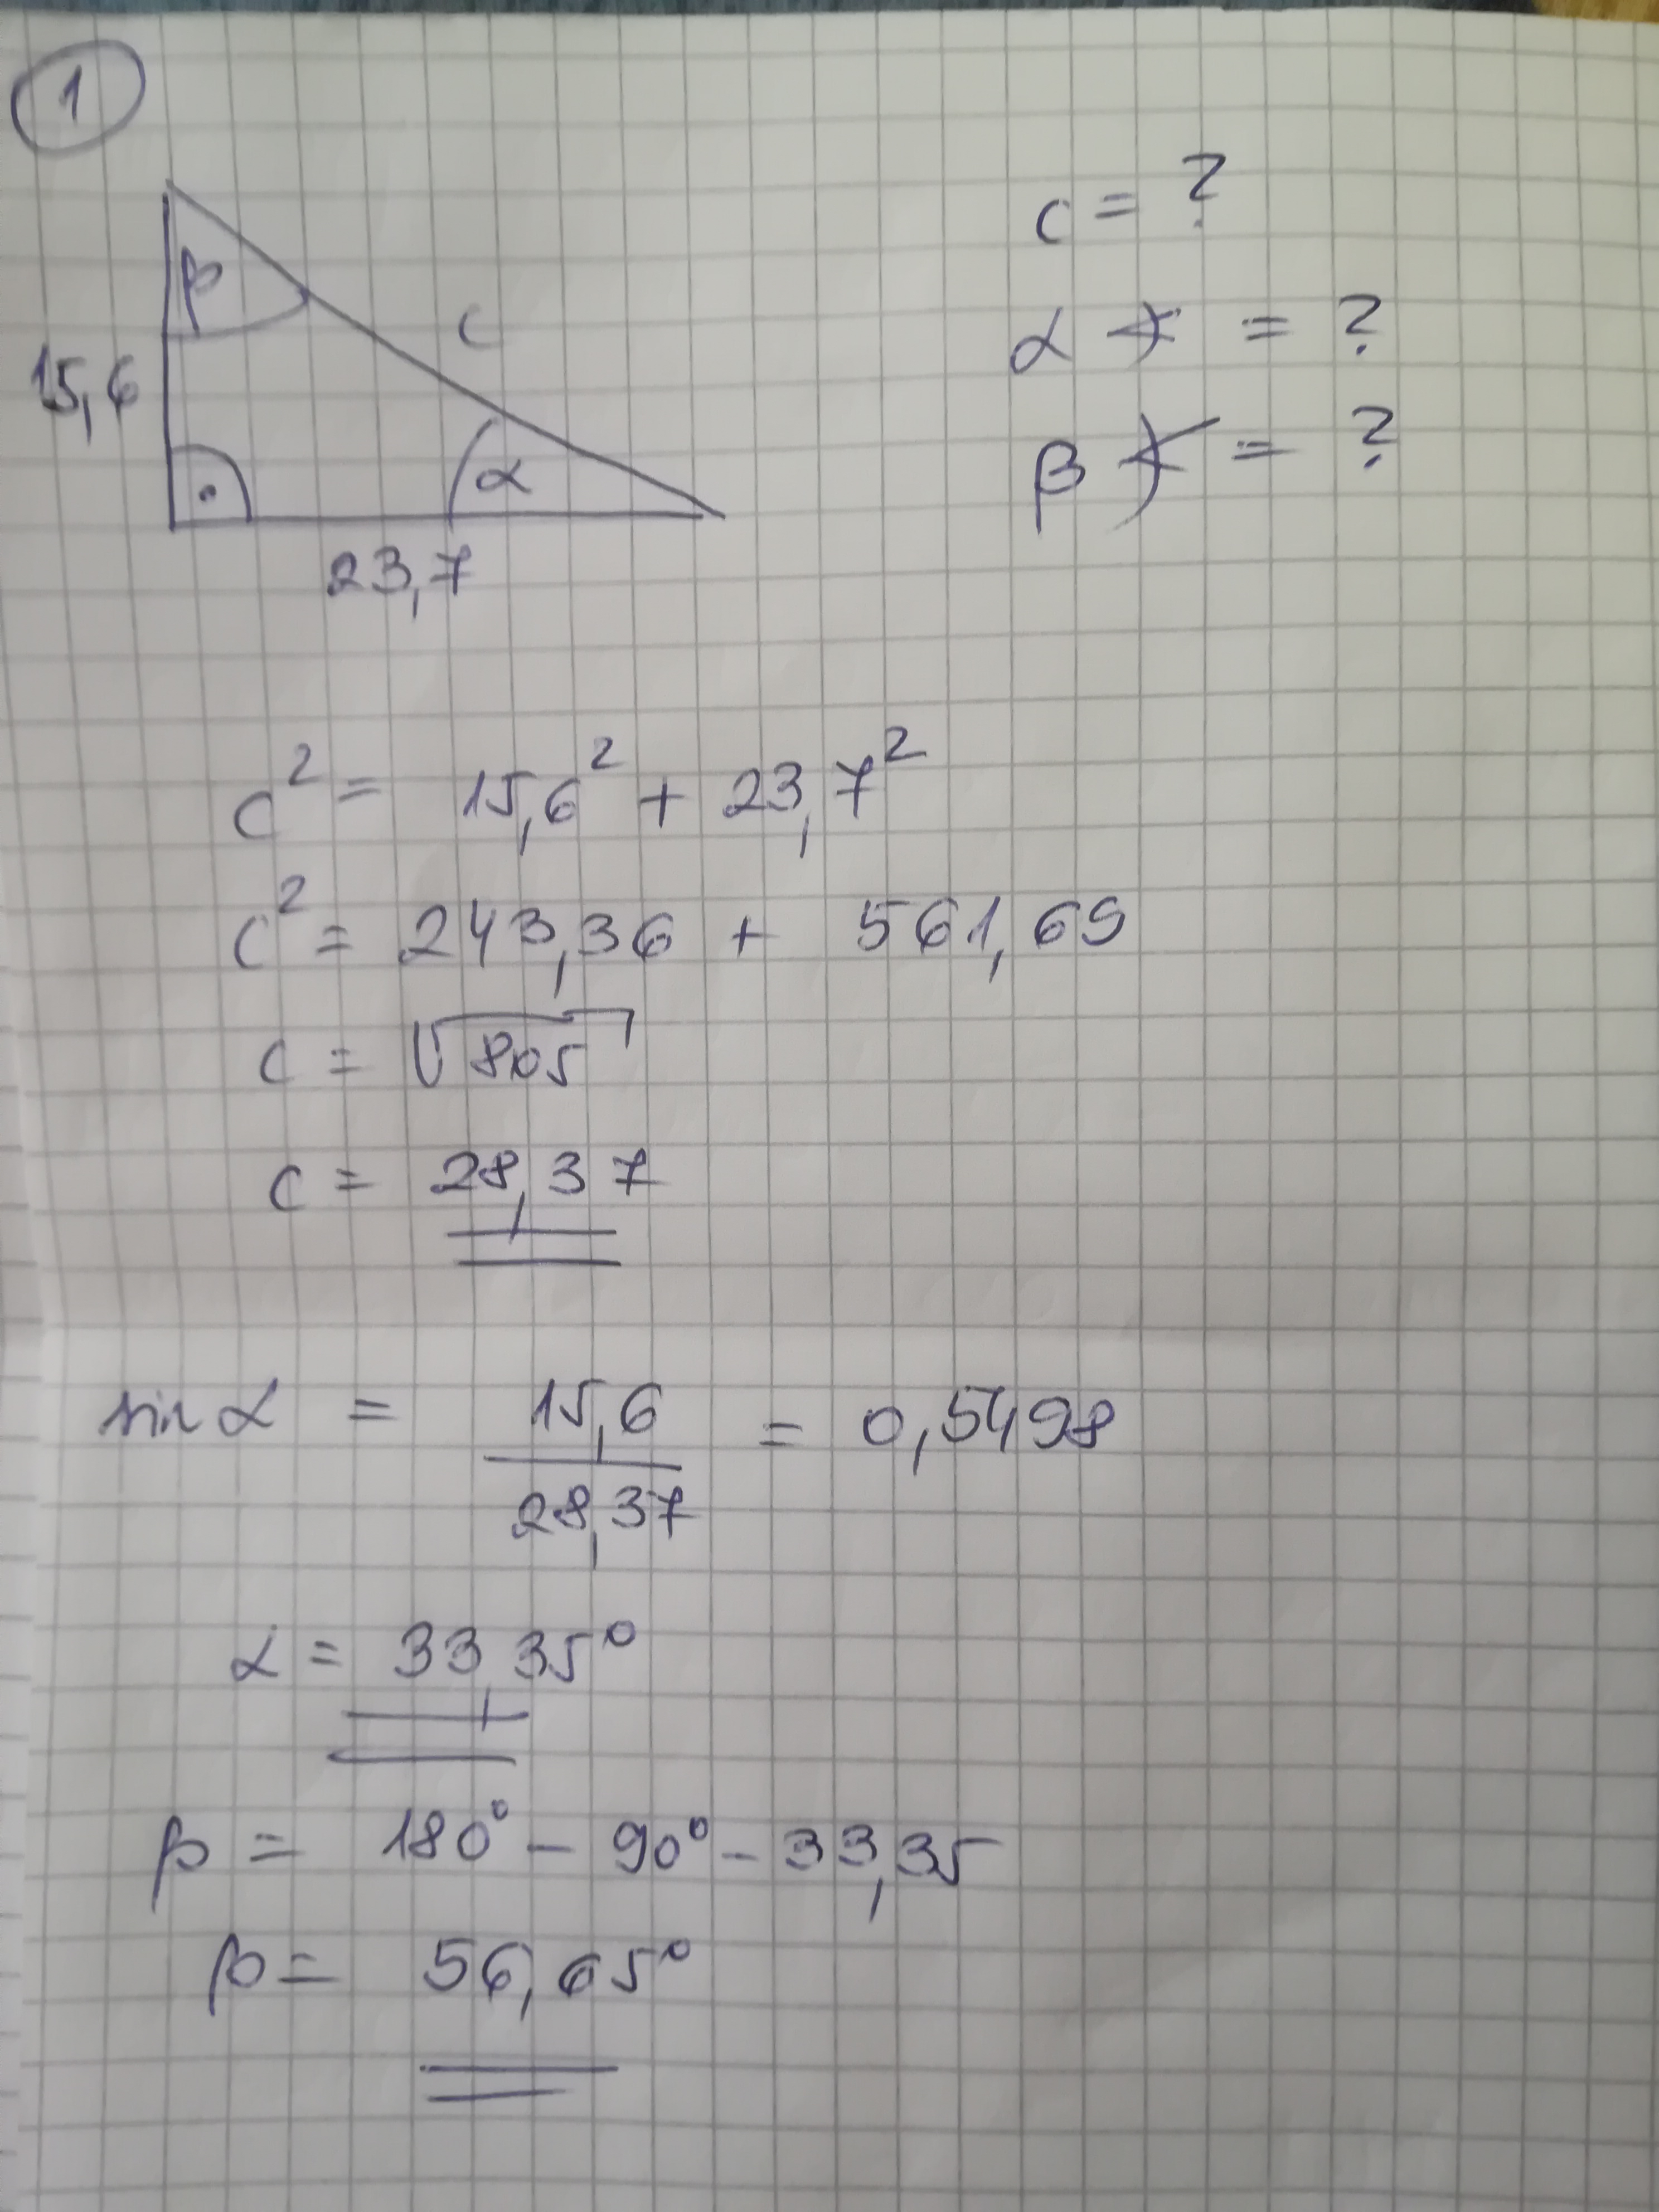 1
c = ?
β
c
α ∢ = ?
15,6
β ∢ = ?
α
23,7
c² = 15,6² + 23,7²
c² = 243,36 + 561,69
c = √805
c = 28,37
sin α = 15,6 / 28,37 = 0,5498
α = 33,35°
β = 180° - 90° - 33,35
β = 56,65°